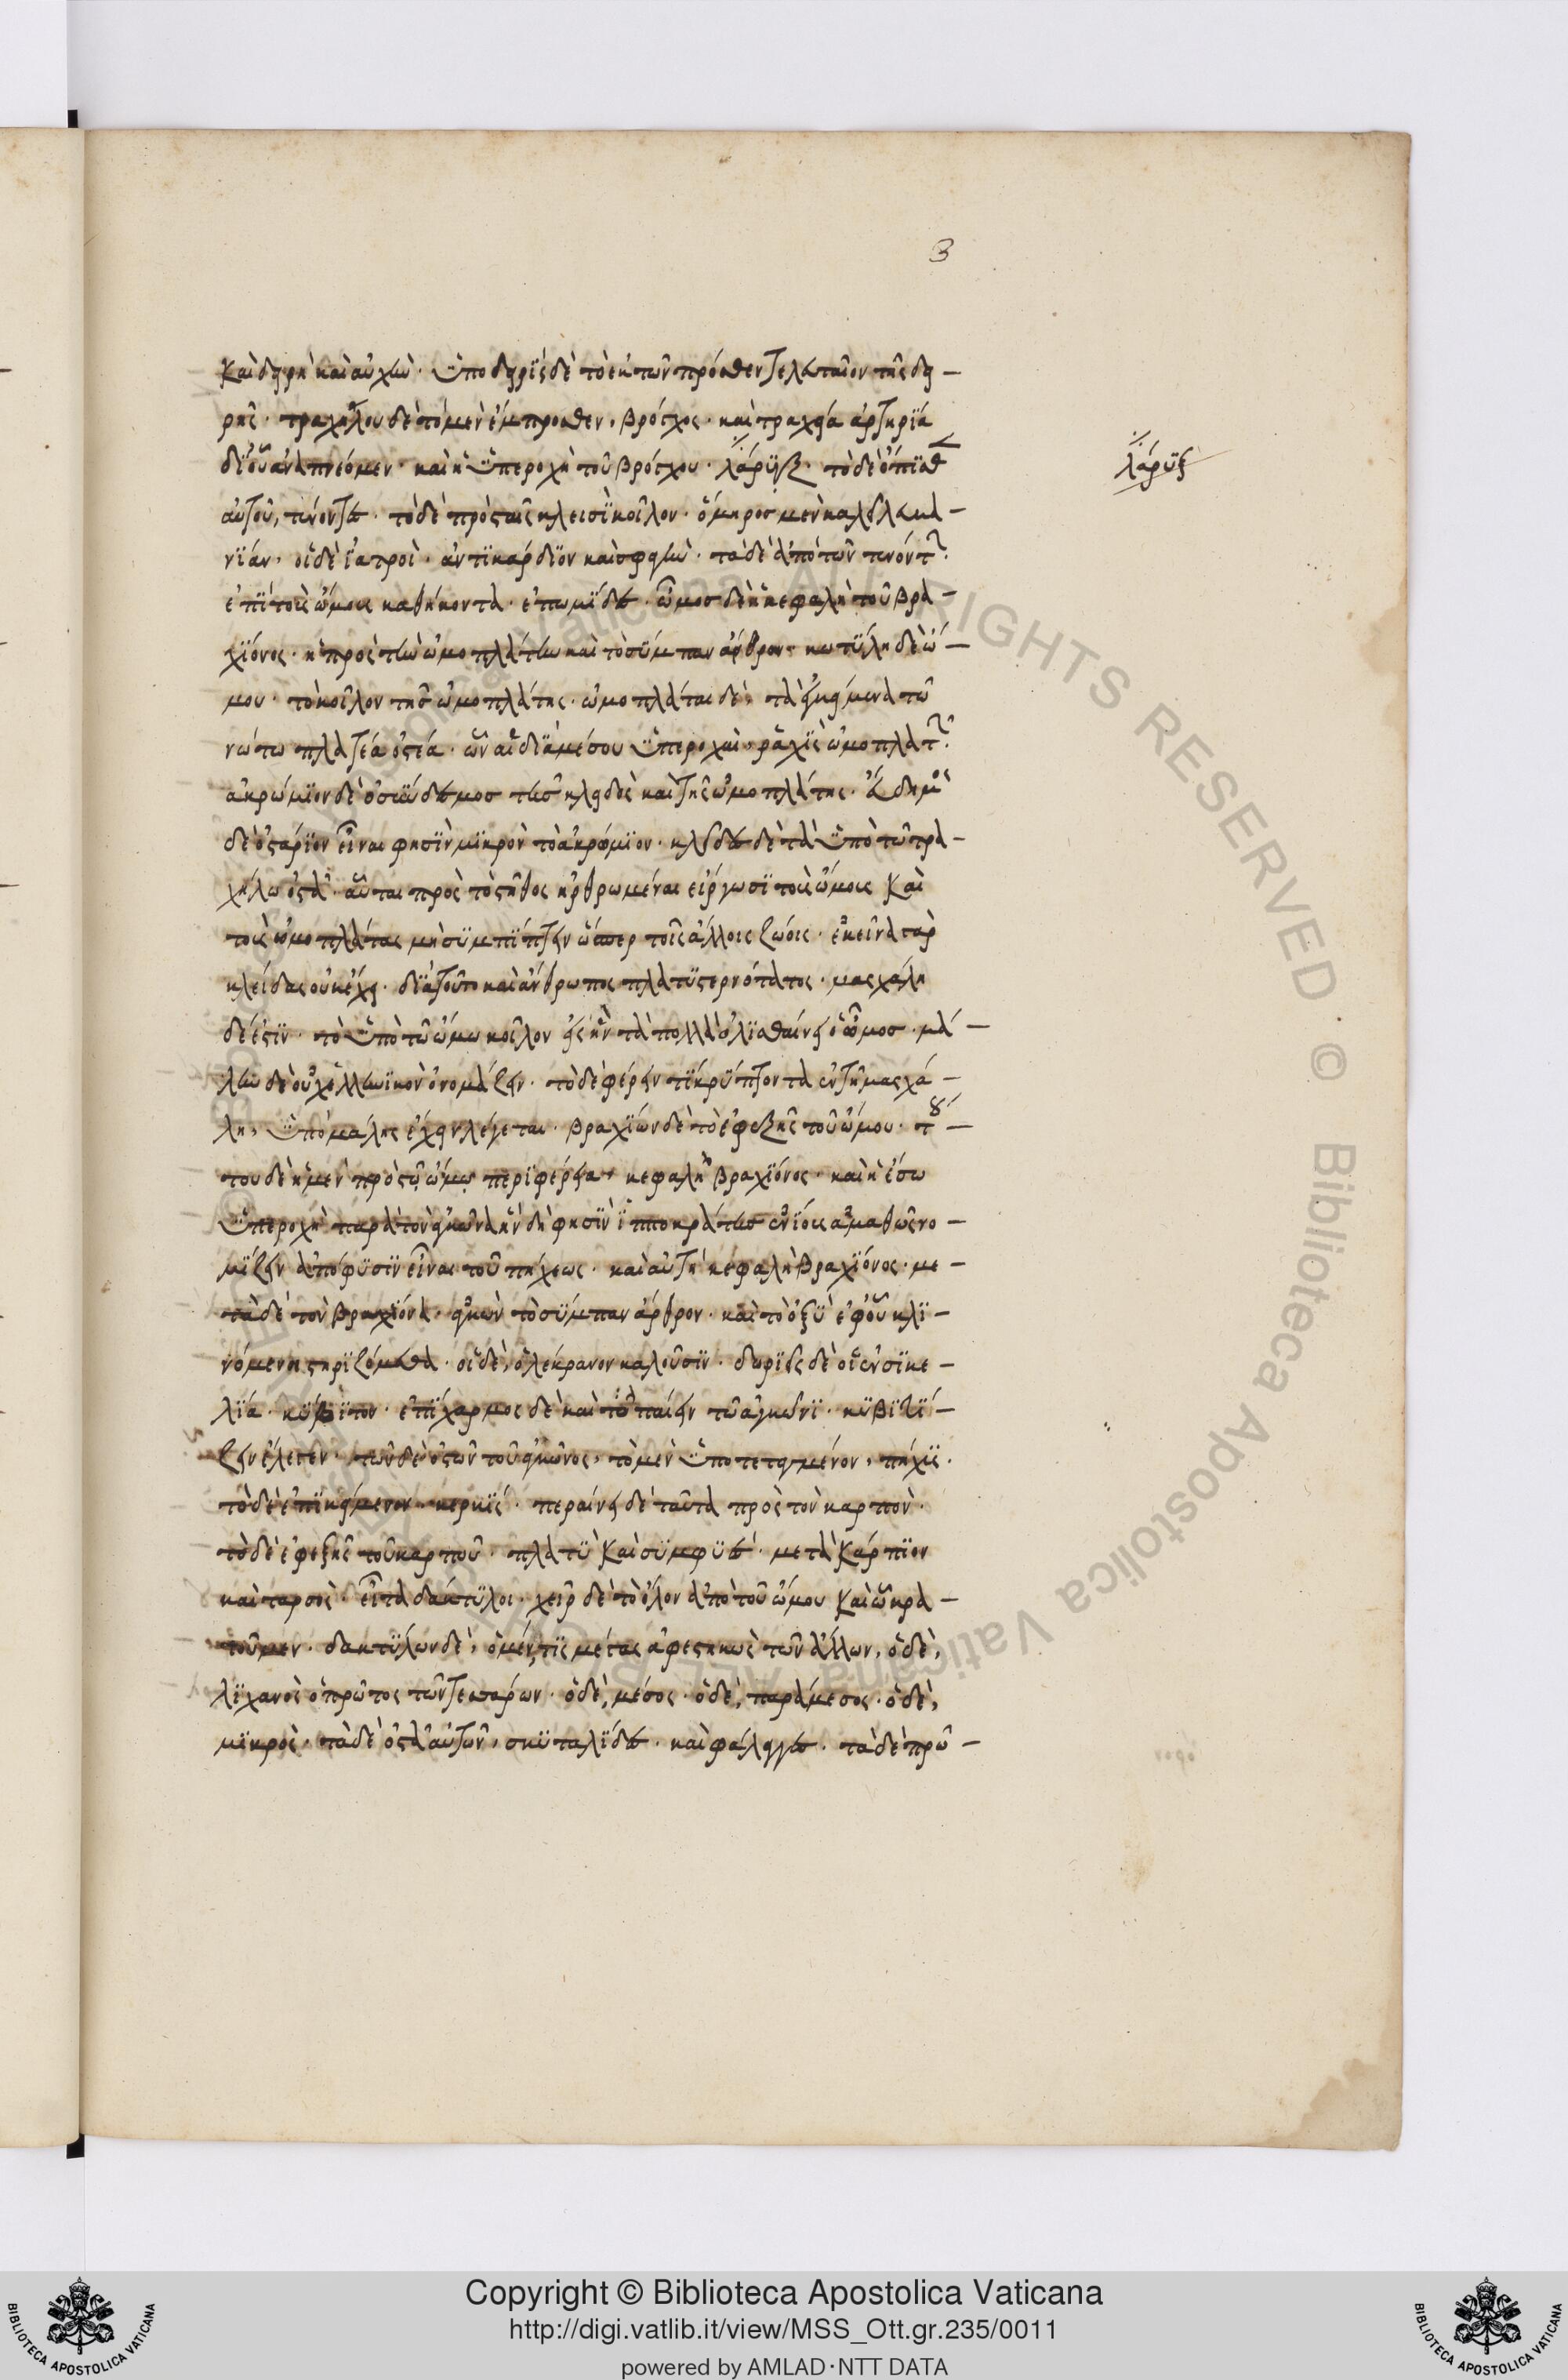 3
καὶ δειρὴ καὶ αὐχὴν. ὑποδειρὶς δὲ τὸ ἐκ τῶν πρόσθεν τελευταῖον τῆς δει-
ρῆς. τραχήλου δὲ τὸ μὲν ἔμπροσθεν, βρόγχος. καὶ τραχεῖα ἀρτηρία
δι' οὗ ἀναπνέομεν. καὶ ἡ ὑπεροχὴ τοῦ βρόγχου. λάρυγξ. τὸ δὲ ὄπισθ
λάρυξ
αὐτοῦ, τένοντες. τὸ δὲ πρὸς ταῖς κλεισὶ κοῖλον. ὅμηρος μὲν καλεῖ λευκα-
νίαν. οἱ δὲ ἰατροὶ. ἀντικάρδιον καὶ σφαγὴν. τὰ δὲ ἀπὸ τῶν τενόντ
ἐπὶ τοὺς ὤμους καθήκοντα. ἐπωμίδες. ὦμος δὲ ἡ κεφαλὴ τοῦ βρα-
χίονος. ἡ πρὸς τὴν ὠμοπλάτην καὶ τὸ σύμπαν ἄρθρον. κωτύλη δὲ ὤ-
μου. τὸ κοῖλον τῆς ὠμοπλάτης. ὠμοπλάται δὲ, τὰ ἐπικείμενα τῶ
νώτω πλατέα ὀστέα. ὧν αἱ διὰ μέσου ὑπεροχαὶ, ῥάχις ὠμοπλατ
ἀκρώμιον δὲ ὁ σύνδεσμος τῆς κλειδὸς καὶ τῆς ὠμοπλάτης. εὔδημος
δὲ ὀστάριον εἶναι φησὶν μικρὸν τὸ ἀκρώμιον. κλεῖδες δὲ τὰ ὑπὸ τῶ τρα-
χήλω ὀστᾶ. αὗται πρὸς τὸ στῆθος ἠρθρωμέναι εἴργωσι τοὺς ὤμους καὶ
τοὺς ὠμοπλάτας μὴ συμπίπτειν ὥσπερ τοῖς ἄλλοις ζώοις. ἐκεῖνα γὰρ
κλείδας οὐκ ἔχει. διὰ τοῦτο καὶ ἄνθρωπος πλατυστερνότατος. μασχάλη
δέ ἐστιν. τὸ ὑπὸ τῶ ὤμω κοῖλον εἰς ἣν τὰ πολλὰ ὀλισθαίνει ὁ ὦμος. μά-
λην δὲ οὐχ ἑλληνικὸν ὀνομάζειν. τὸ δὲ φέρειν τι κρύπτοντα ἐν τῆ μασχά-
λη, ὑπὸ μάλης ἔχειν λέγεται. βραχίων δὲ τὸ ἐφεξῆς τοῦ ὤμου. τού-
του δὲ ἡ μὲν πρὸς τῷ ὤμῳ περιφέρεια. κεφαλὴ βραχίονος. καὶ ἡ ἔσω
ὑπεροχὴ παρὰ τὸν ἀγκῶνα ἣν δὴ φησὶν ἱπποκράτης ἐνίους ἀμαθῶς νο-
μίζειν ἀπόφυσιν εἶναι τοῦ πήχεως. καὶ αὐτὴ κεφαλὴ βραχίονος. με-
τὰ δὲ τὸν βραχίονα. ἀγκὼν τὸ σύμπαν ἄρθρον. καὶ τὸ ὀξὺ ἐφ' οὗ κλι-
νόμενοι στηριζόμεθα. οἱ δὲ, ὀλέκρανον καλοῦσιν. δωριεῖς δὲ οἱ ἐν σικε-
λία. κύβιτον. ἐπίχαρμος δὲ καὶ τὸ παίειν τῶ ἀγκῶνι. κυβιτί-
ζειν ἔλεγεν. τῶν δὲ ὀστῶν τοῦ ἀγκῶνος, τὸ μὲν ὑποτεταγμένον, πῆχις.
τὸ δὲ ἐπικείμενον. κερκίς. περαίνει δὲ ταῦτα πρὸς τὸν καρπὸν.
τὸ δὲ ἐφεξῆς τοῦ καρποῦ. πλατὺ καὶ συμφυὲς. μετὰ κάρπιον
καὶ ταρσὸς. εἶτα δάκτυλοι. χεὶρ δὲ τὸ ὅλον ἀπὸ τοῦ ὤμου καὶ ὧ κρα-
τοῦμεν. δακτύλων δὲ, ὁ μέν τις μέγας ἀφεστηκὼς τῶν ἄλλων, ὁ δὲ,
λιχανὸς ὁ πρῶτος τῶν τεσσάρων. ὁ δὲ, μέσος. ὁ δὲ, παράμεσος. ὁ δὲ,
μικρὸς. τὰ δὲ ὀστᾶ αὐτῶν, σκυταλίδες. καὶ φάλαγγες. τὰ δὲ πρῶ-
© Biblioteca Apostolica Vaticana ALL RIGHTS RESERVED
Copyright © Biblioteca Apostolica Vaticana
http://digi.vatlib.it/view/MSS_Ott.gr.235/0011
powered by AMLAD·NTT DATA
BIBLIOTECA APOSTOLICA VATICANA
BIBLIOTECA APOSTOLICA VATICANA